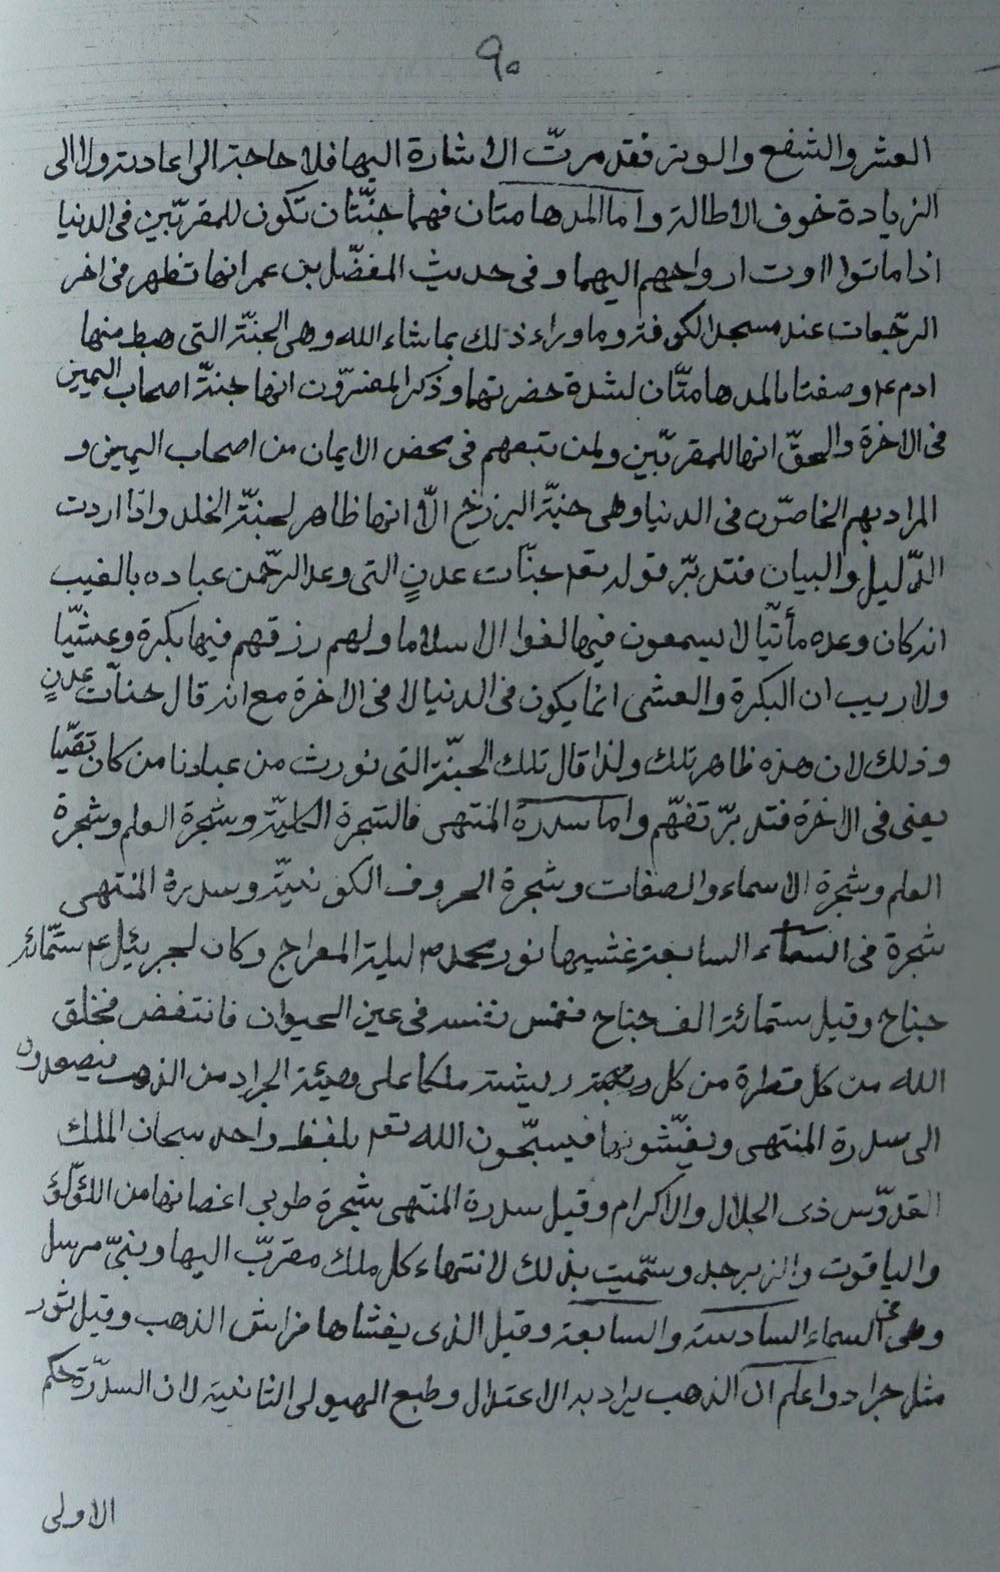 ٩٠
العشر والشفع والوتر فقد مرّت الاشارة اليها فلا حاجة الى اعادته ولا الى
الزيادة خوف الاطالة واما المدهامتان فهما جنّتان تكون للمقربّين فى الدنيا
اذا ماتوا اوت ارواحهم اليهما وفى حديث المفضّل بن عمر انها تظهر فى اخر
الرجّعات عند مسجد الكوفة وما وراء ذلك بما شاء الله وهى الجنّة التى هبط منها
ادم ع وصفتا بالمدهامتّان لشدة خضرتها وذكر المفسّرون انها جنّة اصحاب اليمين
فى الاخرة والحقّ انها للمقربّين ولمن تبعهم فى محض الايمان من اصحاب اليمين و
المراد بهم الخاصّون فى الدنيا وهى جنّة البرزخ الّا انها ظاهر لجنّة الخلد واذا اردت
الدّليل والبيان فتدبّر قوله تعه جنّات عدنٍ التى وعد الرحّمن عباده بالغيب
انه كان وعده مأتيّا لا يسمعون فيها لغوا الا سلاما ولهم رزقهم فيها بكرة وعشيّا
ولا ريب ان البكرة والعشى انما يكون فى الدنيا لا فى الاخرة مع انه قال جنّات عدنٍ
وذلك لان هذه ظاهر تلك ولذا قال تلك الجنّة التى نورث من عبادنا من كان تقيّا
يعنى فى الاخرة فتدبّر تفهّم واما سدرة المنتهى فالشجرة الكليّة وشجرة العلم وشجرة
العلم وشجرة الاسماء والصفات وشجرة الحروف الكونيّة وسدرة المنتهى
شجرة فى السماء السابعة غشيها نور محمد ص ليلة المعراج وكان لجبرئيل ع ستّمائة
جناح وقيل ستمائة الف جناح فغمس نفسه فى عين الحيوان فانتفض فخلق
الله من كل قطرة من كل ريشة ملكا على هيئة الجراد من الذهب فيصعدون
الى سدرة المنتهى ويغشّونها فيسبّحون الله تعه بلفظ واحد سبحان الملك
القدوّس ذى الجلال والاكرام وقيل سدرة المنتهى شجرة طوبى اغصانها من اللؤلؤ
والياقوت والزبرجد وسمّيت بذلك لانتهاء كل ملك مقربّ اليها ونبىّ مرسل
وهى فى السماء السادسة والسابعة وقيل الذى يغشاها فراش الذهب وقيل نور
مثل جراد واعلم ان الذهب يراد به الاعتدال وطبع الهيولى الثانية لان السدرة حكم
الاولى